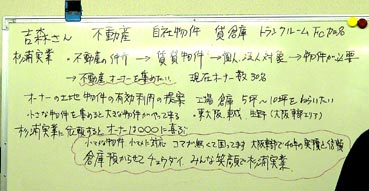 吉森さん 不動産 自社物件 貸倉庫 トランクルーム
杉浦実業 ・不動産の仲介 → 賃貸物件 → 個人 法人対象 → 物件が必要
→ 不動産オーナーを集めたい 現在オーナー数 30%
オーナーの土地 物件の有効利用の提案 工場 倉庫 5坪〜10坪をねらいたい
小さな物件を集めると大きな物件がやってくる ・東大阪
杉浦実業に依頼するとオーナーは〇〇〇に喜ぶ
小さな物件 小口に対応 コマが無くて困ってます 大阪 40年の実績と信頼
倉庫 預からせてチョウダイ みんな笑顔で杉浦実業